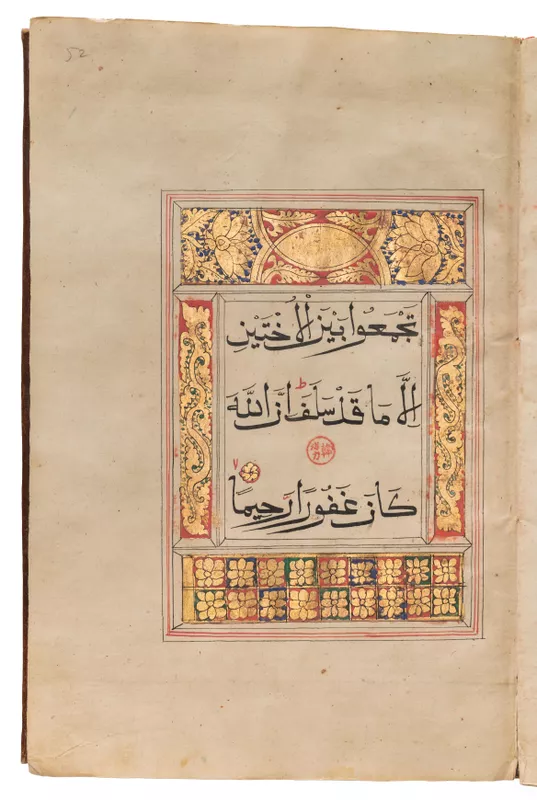 52
تَجْمَعُوا بَيْنَ الْأُخْتَيْنِ
اِلَّا مَا قَدْ سَلَفَ اِنَّ اللَّهَ
كَانَ غَفُورًا رَّحِيمًا